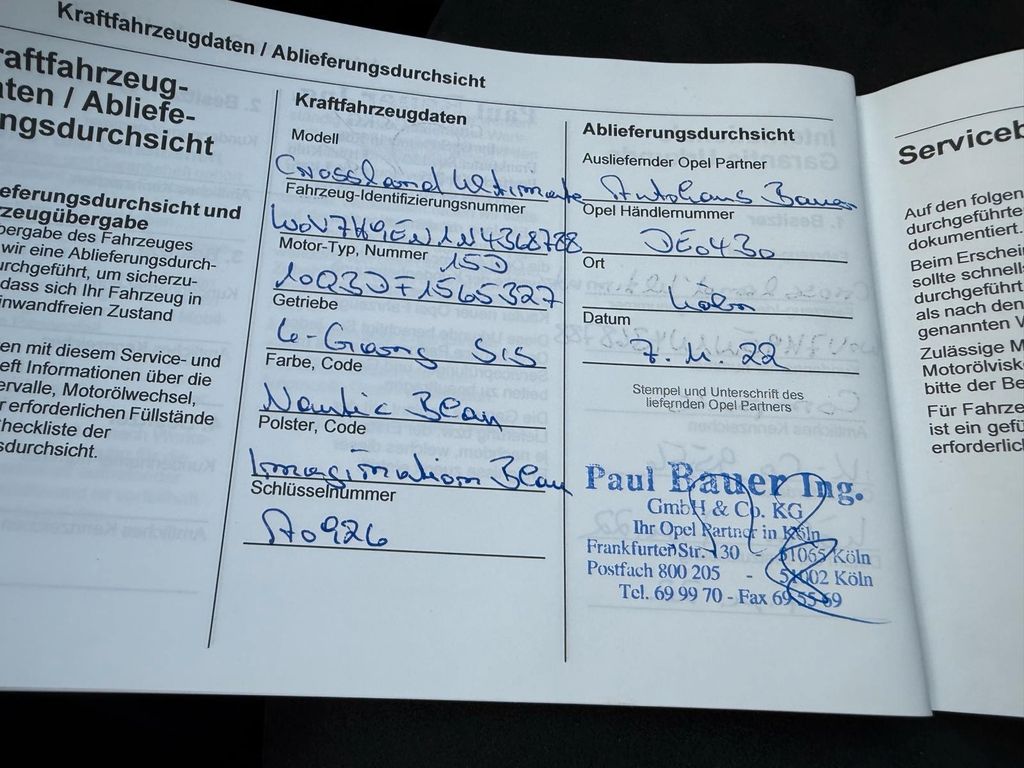 Kraftfahrzeugdaten / Ablieferungsdurchsicht
raftfahrzeug-
ten / Abliefe-
ngsdurchsicht
eferungsdurchsicht und
zeugübergabe
bergabe des Fahrzeuges
wir eine Ablieferungsdurch-
urchgeführt, um sicherzu-
dass sich Ihr Fahrzeug in
inwandfreien Zustand
en mit diesem Service- und
eft Informationen über die
ervalle, Motorölwechsel,
r erforderlichen Füllstände
Checkliste der
sdurchsicht.
Kraftfahrzeugdaten
Modell
Crossland Ultimate
Fahrzeug-Identifizierungsnummer
Motor-Typ, Nummer
15D
10Q3DF1565327
Getriebe
6-Gang SIS
Farbe, Code
Nautic Blau
Polster, Code
Imagination Blau
Schlüsselnummer
A0926
Ablieferungsdurchsicht
Ausliefernder Opel Partner
Autohaus Bauer
Opel Händlernummer
DE0430
Ort
Köln
Datum
7.11.22
Stempel und Unterschrift des
liefernden Opel Partners
Paul Bauer Ing.
GmbH & Co. KG
Ihr Opel Partner in Köln
Frankfurter Str. 130 - 51065 Köln
Postfach 800 205 - 51002 Köln
Tel. 69 99 70 - Fax 69 55 69
Serviceb
Auf den folgen
durchgeführte
dokumentiert.
Beim Erschei
sollte schnells
durchgeführt
als nach den
genannten W
Zulässige M
Motorölvisk
bitte der Be
Für Fahrze
ist ein gefü
erforderlic